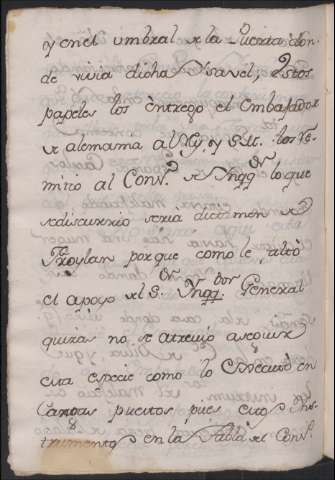 y en el umbral de la Puerta don
de vivia dicha Ysavel, Estos
papeles los entrego el Embajador
de alemania al Rey y S.M. los re
mitio al Cons.º de Ynqq.on lo que
se discurrio seria dictamen de
Froylan porque como le faltò
el apoyo del S.or Ynqq.dor General
quizas no se atrevio a seguir
esta especie como lo executò en
tantas puestos pues estos Ins
trumentos en la Sala del Cons.º